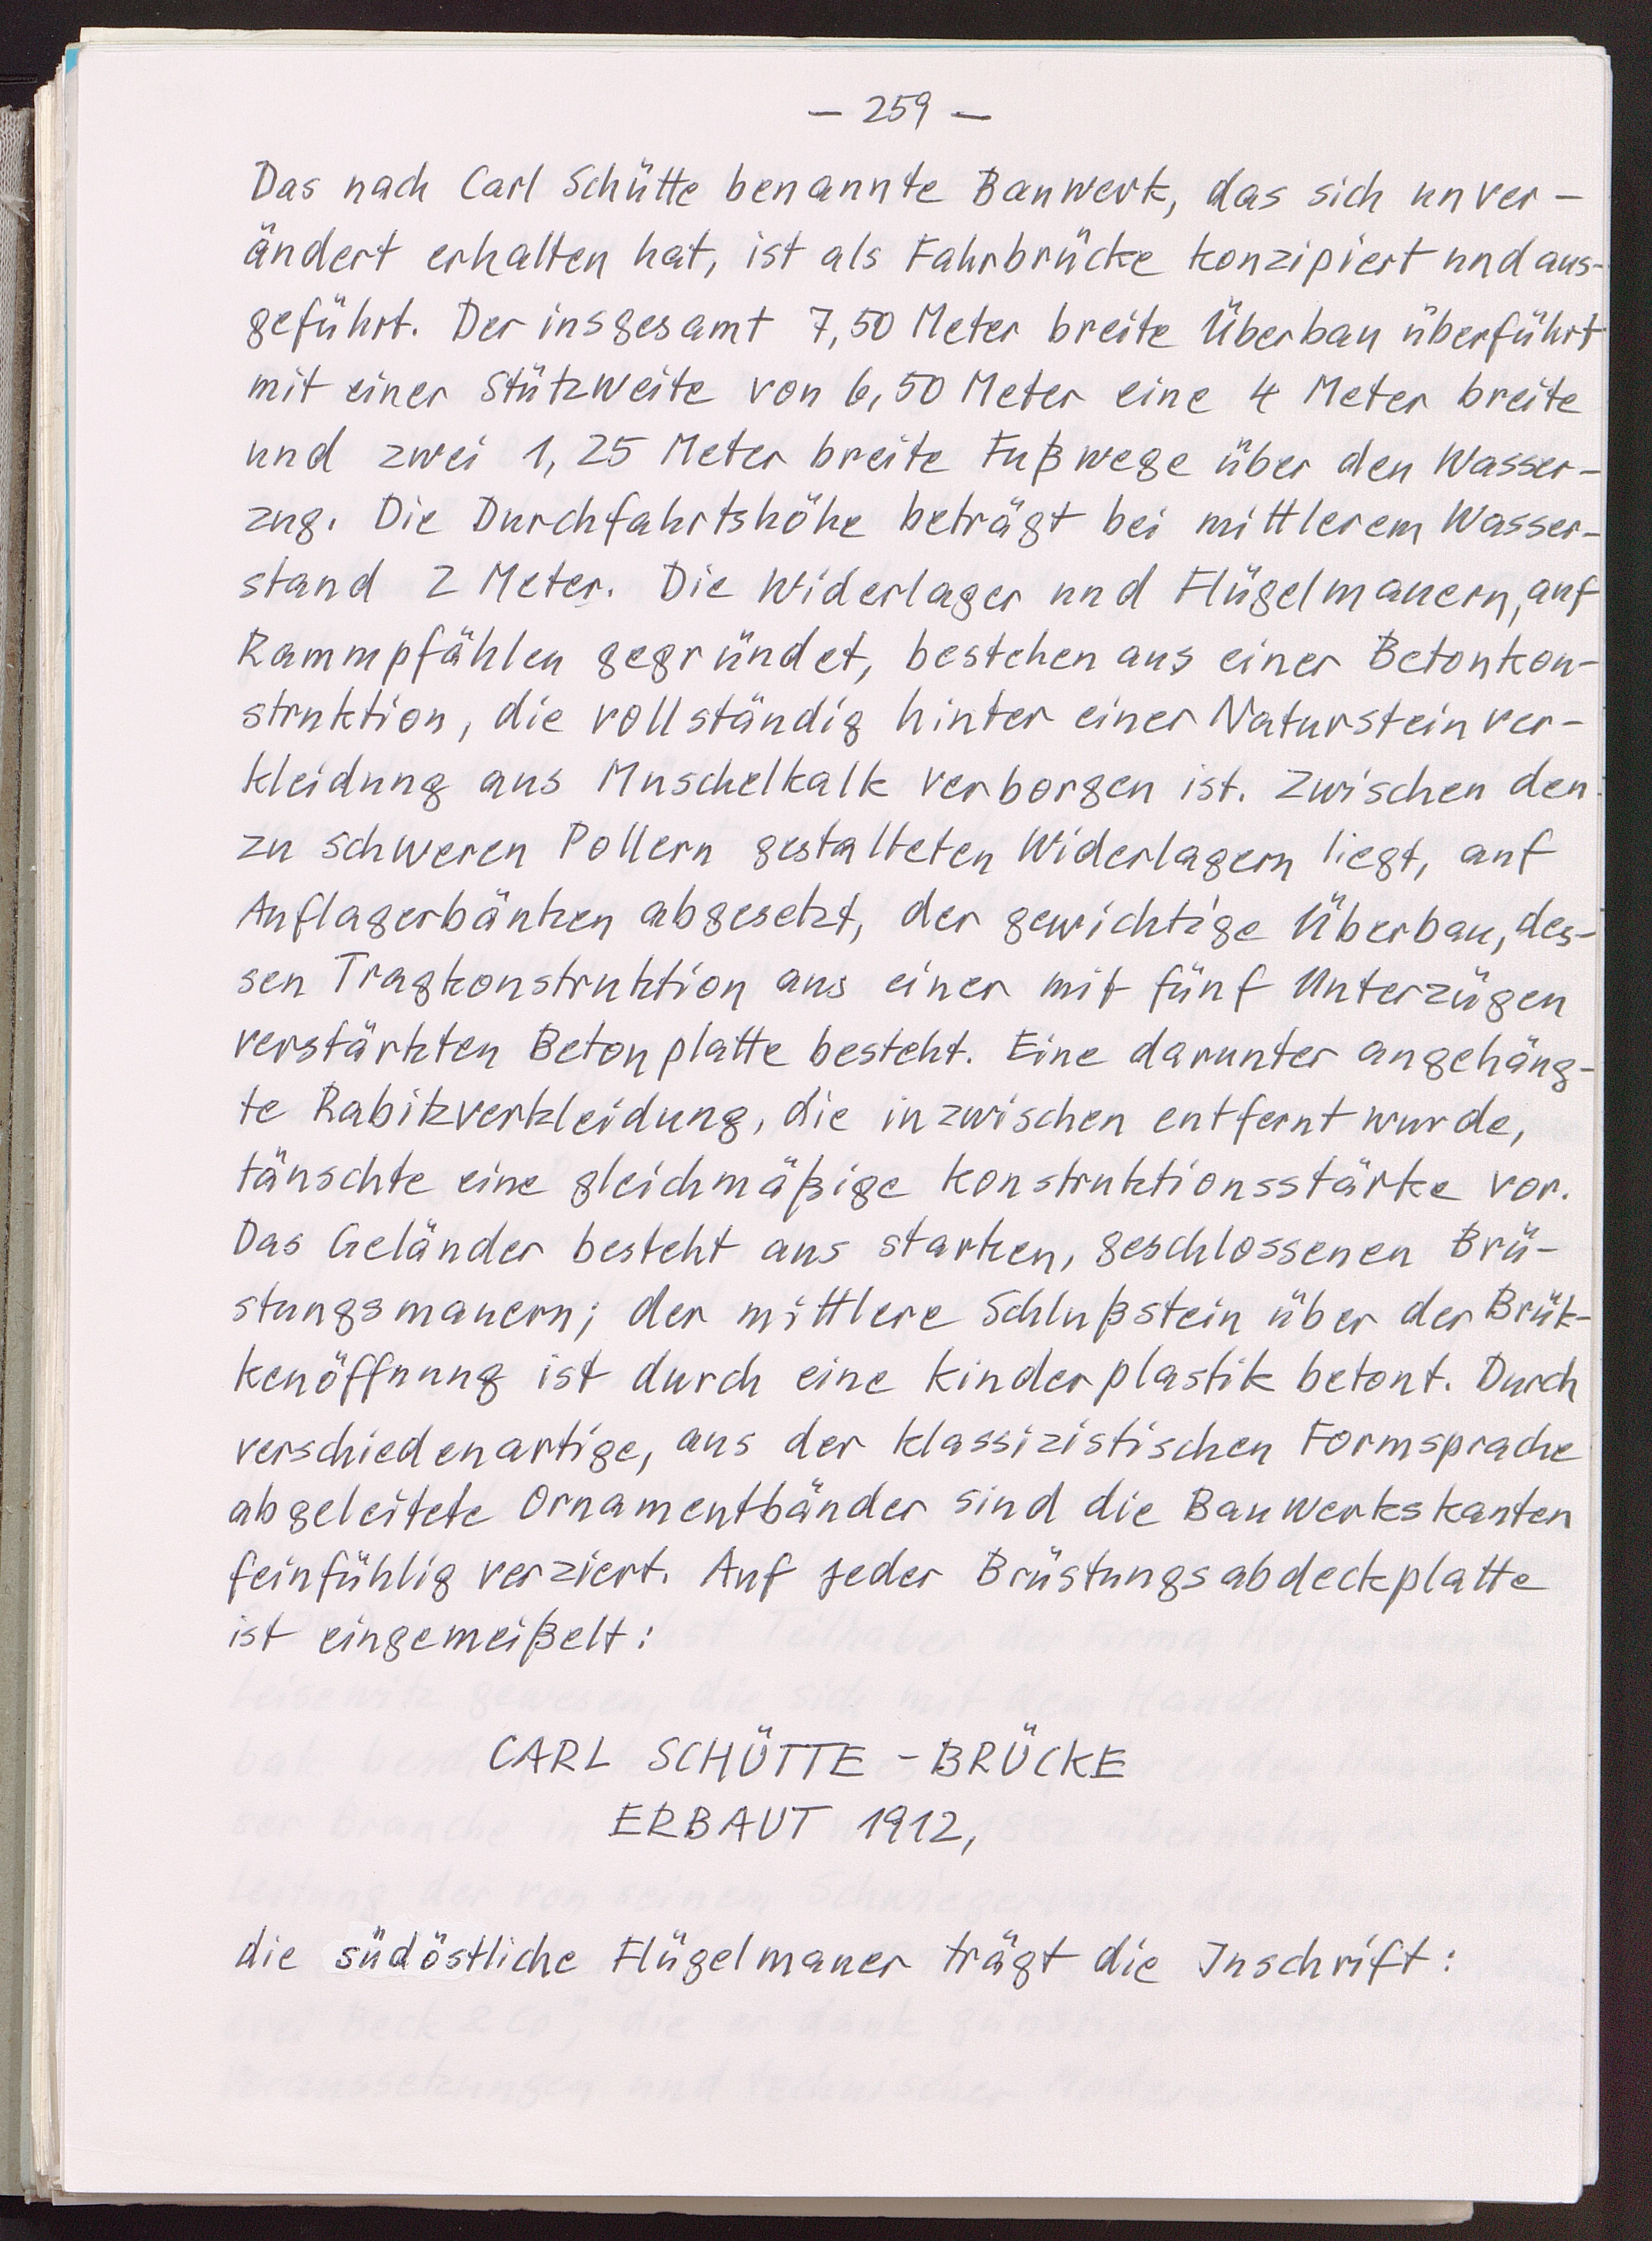 — 259 —
Das nach Carl Schütte benannte Bauwerk, das sich unver-
ändert erhalten hat, ist als Fahrbrücke konzipiert und aus-
geführt. Der insgesamt 7,50 Meter breite Überbau überführt
mit einer Stützweite von 6,50 Meter eine 4 Meter breite
und zwei 1,25 Meter breite Fußwege über den Wasser-
zug. Die Durchfahrtshöhe beträgt bei mittlerem Wasser-
stand 2 Meter. Die Widerlager und Flügelmauern, auf
Rammpfählen gegründet, bestehen aus einer Betonkon-
struktion, die vollständig hinter einer Natursteinver-
kleidung aus Muschelkalk verborgen ist. Zwischen den
zu schweren Pollern gestalteten Widerlagern liegt, auf
Auflagerbänken abgesetzt, der gewichtige Überbau, des-
sen Tragkonstruktion aus einer mit fünf Unterzügen
verstärkten Betonplatte besteht. Eine darunter angehäng-
te Rabitzverkleidung, die inzwischen entfernt wurde,
täuschte eine gleichmäßige Konstruktionsstärke vor.
Das Geländer besteht aus starken, geschlossenen Brü-
stungsmauern; der mittlere Schlußstein über der Brük-
kenöffnung ist durch eine Kinderplastik betont. Durch
verschiedenartige, aus der klassizistischen Formsprache
abgeleitete Ornamentbänder sind die Bauwerkskanten
feinfühlig verziert. Auf jeder Brüstungsabdeckplatte
ist eingemeißelt:
CARL SCHÜTTE - BRÜCKE
ERBAUT 1912,
die südöstliche Flügelmauer trägt die Inschrift: